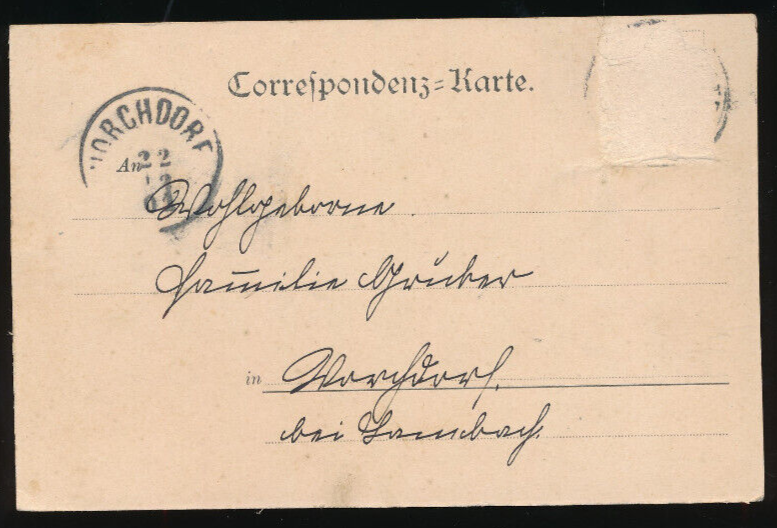 Correſpondenz=Karte.
VORCHDORF
22
An
Wohlgeborne
Familie Gruber
in Vorchdorf.
bei Lambach.